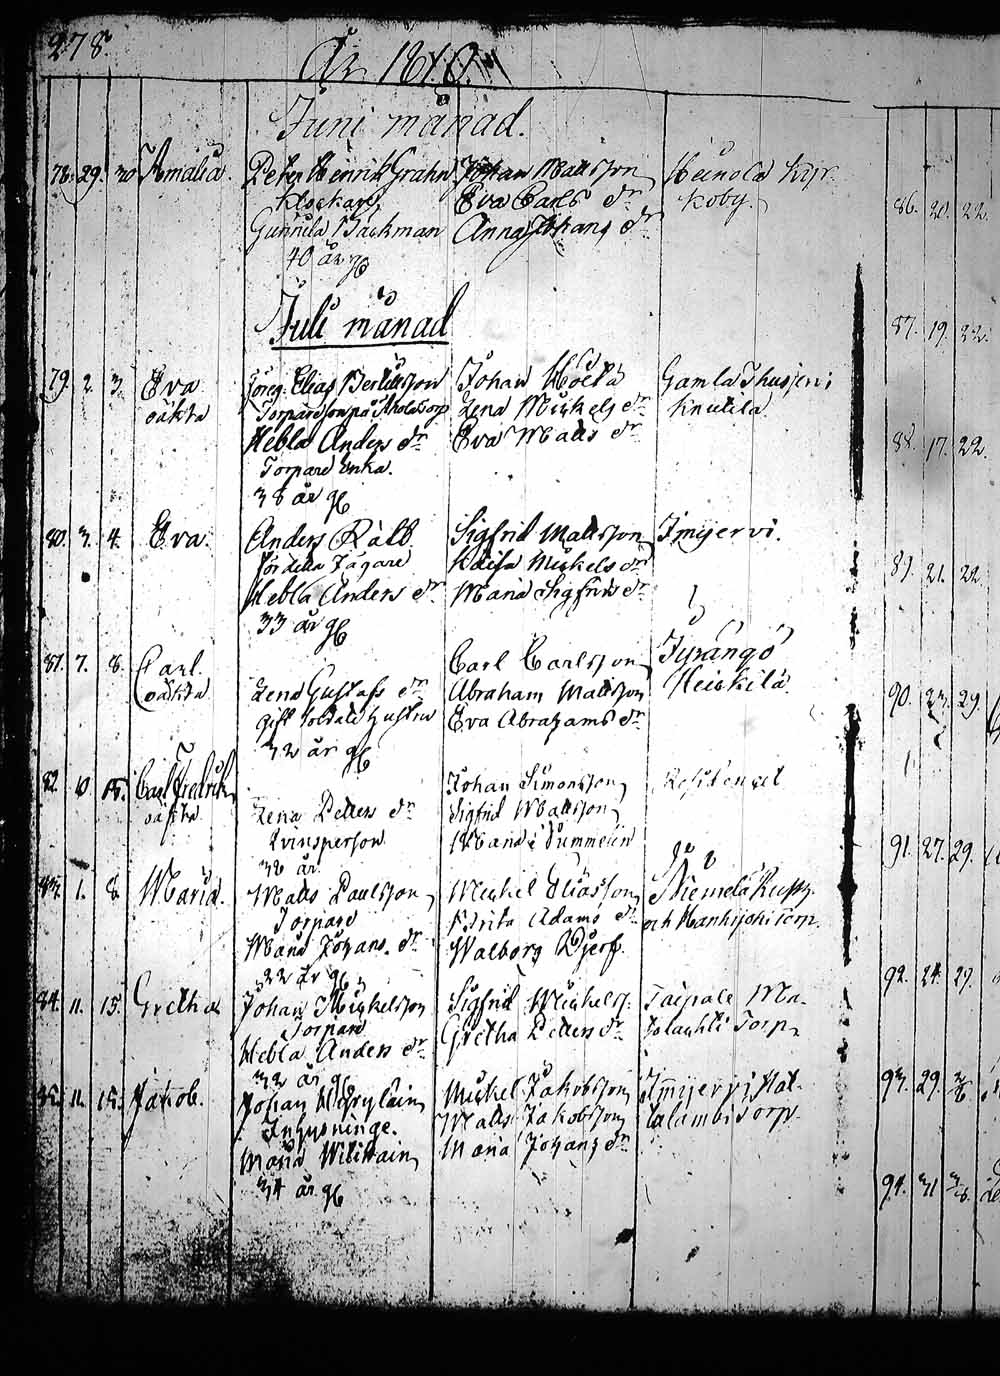 278.
År 1810.
Juni månad.
78. 29. 30 Amalia. Peter Henrik Grahn Johan Mattsson Heinola Kyr-
Klockare Eva Carls dr. koby.
Gunnila Backman Anna Johans dr.
40 år
Juli månad
79. 2. 3. Eva Elias Bertilsson Johan Gamla
oäkta Torpareson på Lena Michels dr. Knutila.
Hebla Anders dr. Eva Matts dr.
Torpare Enka.
38 år
80. 3. 4. Eva. Anders Rått Sigfrid Mattsson Imijervi.
för detta Jägare Kaisa Michels dr.
Hebla Anders dr. Maria Sigfrids dr.
33 år
81. 7. 8. Carl. Carl Carlsson Jyrängö
oäkta Lena Gustafs dr. Abraham Mattsson Heickilä.
gift Soldate hustru Eva Abrahams dr.
32 år
82. 10 15. Carl Fredrik Johan Simonsson Residenset
oäkta Lena Petters dr. Sigfrid Mattsson
Qvinsperson Maria Summeiin
38 år.
83. 1. 8. Maria. Matts Paulsson Michel Eliasson Niemelä
Torpare Brita Adams dr. och Torp.
Maria Johans dr. Walborg
22 år
84. 11. 15. Gretha Johan Mickelsson Sigfrid Michelss. Taipale Ma-
Torpare Gretha Petters dr. Torp
Hebla Anders dr.
32 år
85. 11. 15. Jakob. Johan Michel Jakobsson Imijervi Hat-
Inhysninge. Matts Jakobsson talambi torp.
Maria Maria Johans dr.
34 år
86. 20. 22.
87. 19. 22.
88. 17. 22.
89. 21. 22.
90. 23. 29.
91. 27. 29.
92. 24. 29.
93. 29. 3/8
94. 31 3/8.